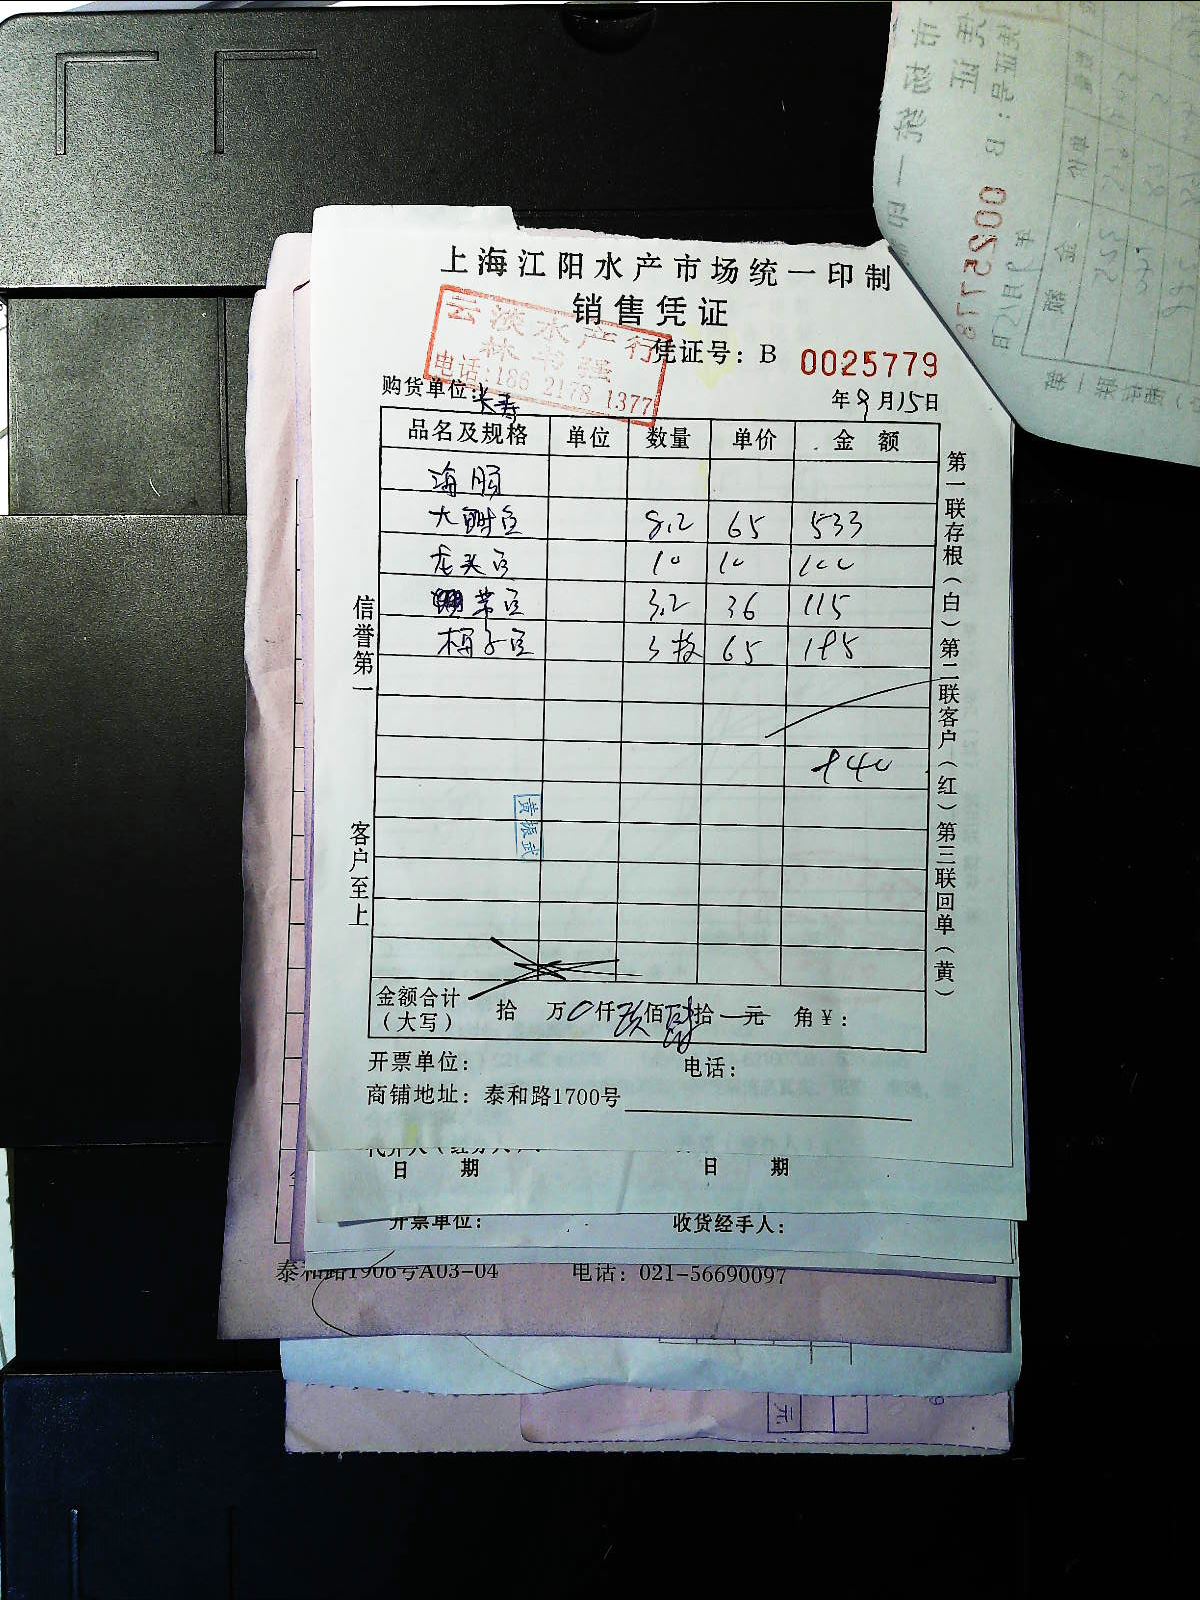 上海江阳水产市场统一印制
销售凭证
云淡水产行
林书强
电话:186 2178 1377
凭证号: B 0025779
购货单位: 长寿
年9月15日
品名及规格 单位 数量 单价 金额
海肠
大鲥鱼 8.2 65 533
龙头鱼 10 10 100
带鱼 3.2 36 115
梅子鱼 3 65 195
940
黄振武
信誉第一
客户至上
第一联存根(白) 第二联客户(红) 第三联回单(黄)
金额合计(大写) 拾 万 0 仟 玖 佰 肆 拾 元 角 ¥:
开票单位: 电话:
商铺地址: 泰和路1700号
日 期 日 期
开票单位: 收货经手人:
泰和路1906号A03-04 电话: 021-56690097
元
B 0025778